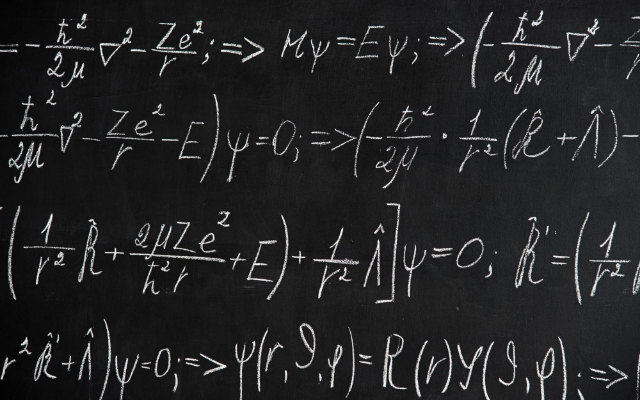 = -ħ²/2μ ∇² - Ze²/r; => Hψ = Eψ; => (-ħ²/2μ ∇² -
-ħ²/2μ ∇² - Ze²/r - E)ψ = 0; => (-ħ²/2μ · 1/r² (R̂ + Λ̂) -
[(1/r² R̂ + 2μZe²/ħ²r + E) + 1/r² Λ̂]ψ = 0; R̂' = (1/r²
r² R̂' + Λ̂)ψ = 0; => ψ(r, ϑ, φ) = R(r)Y(ϑ, φ); =>